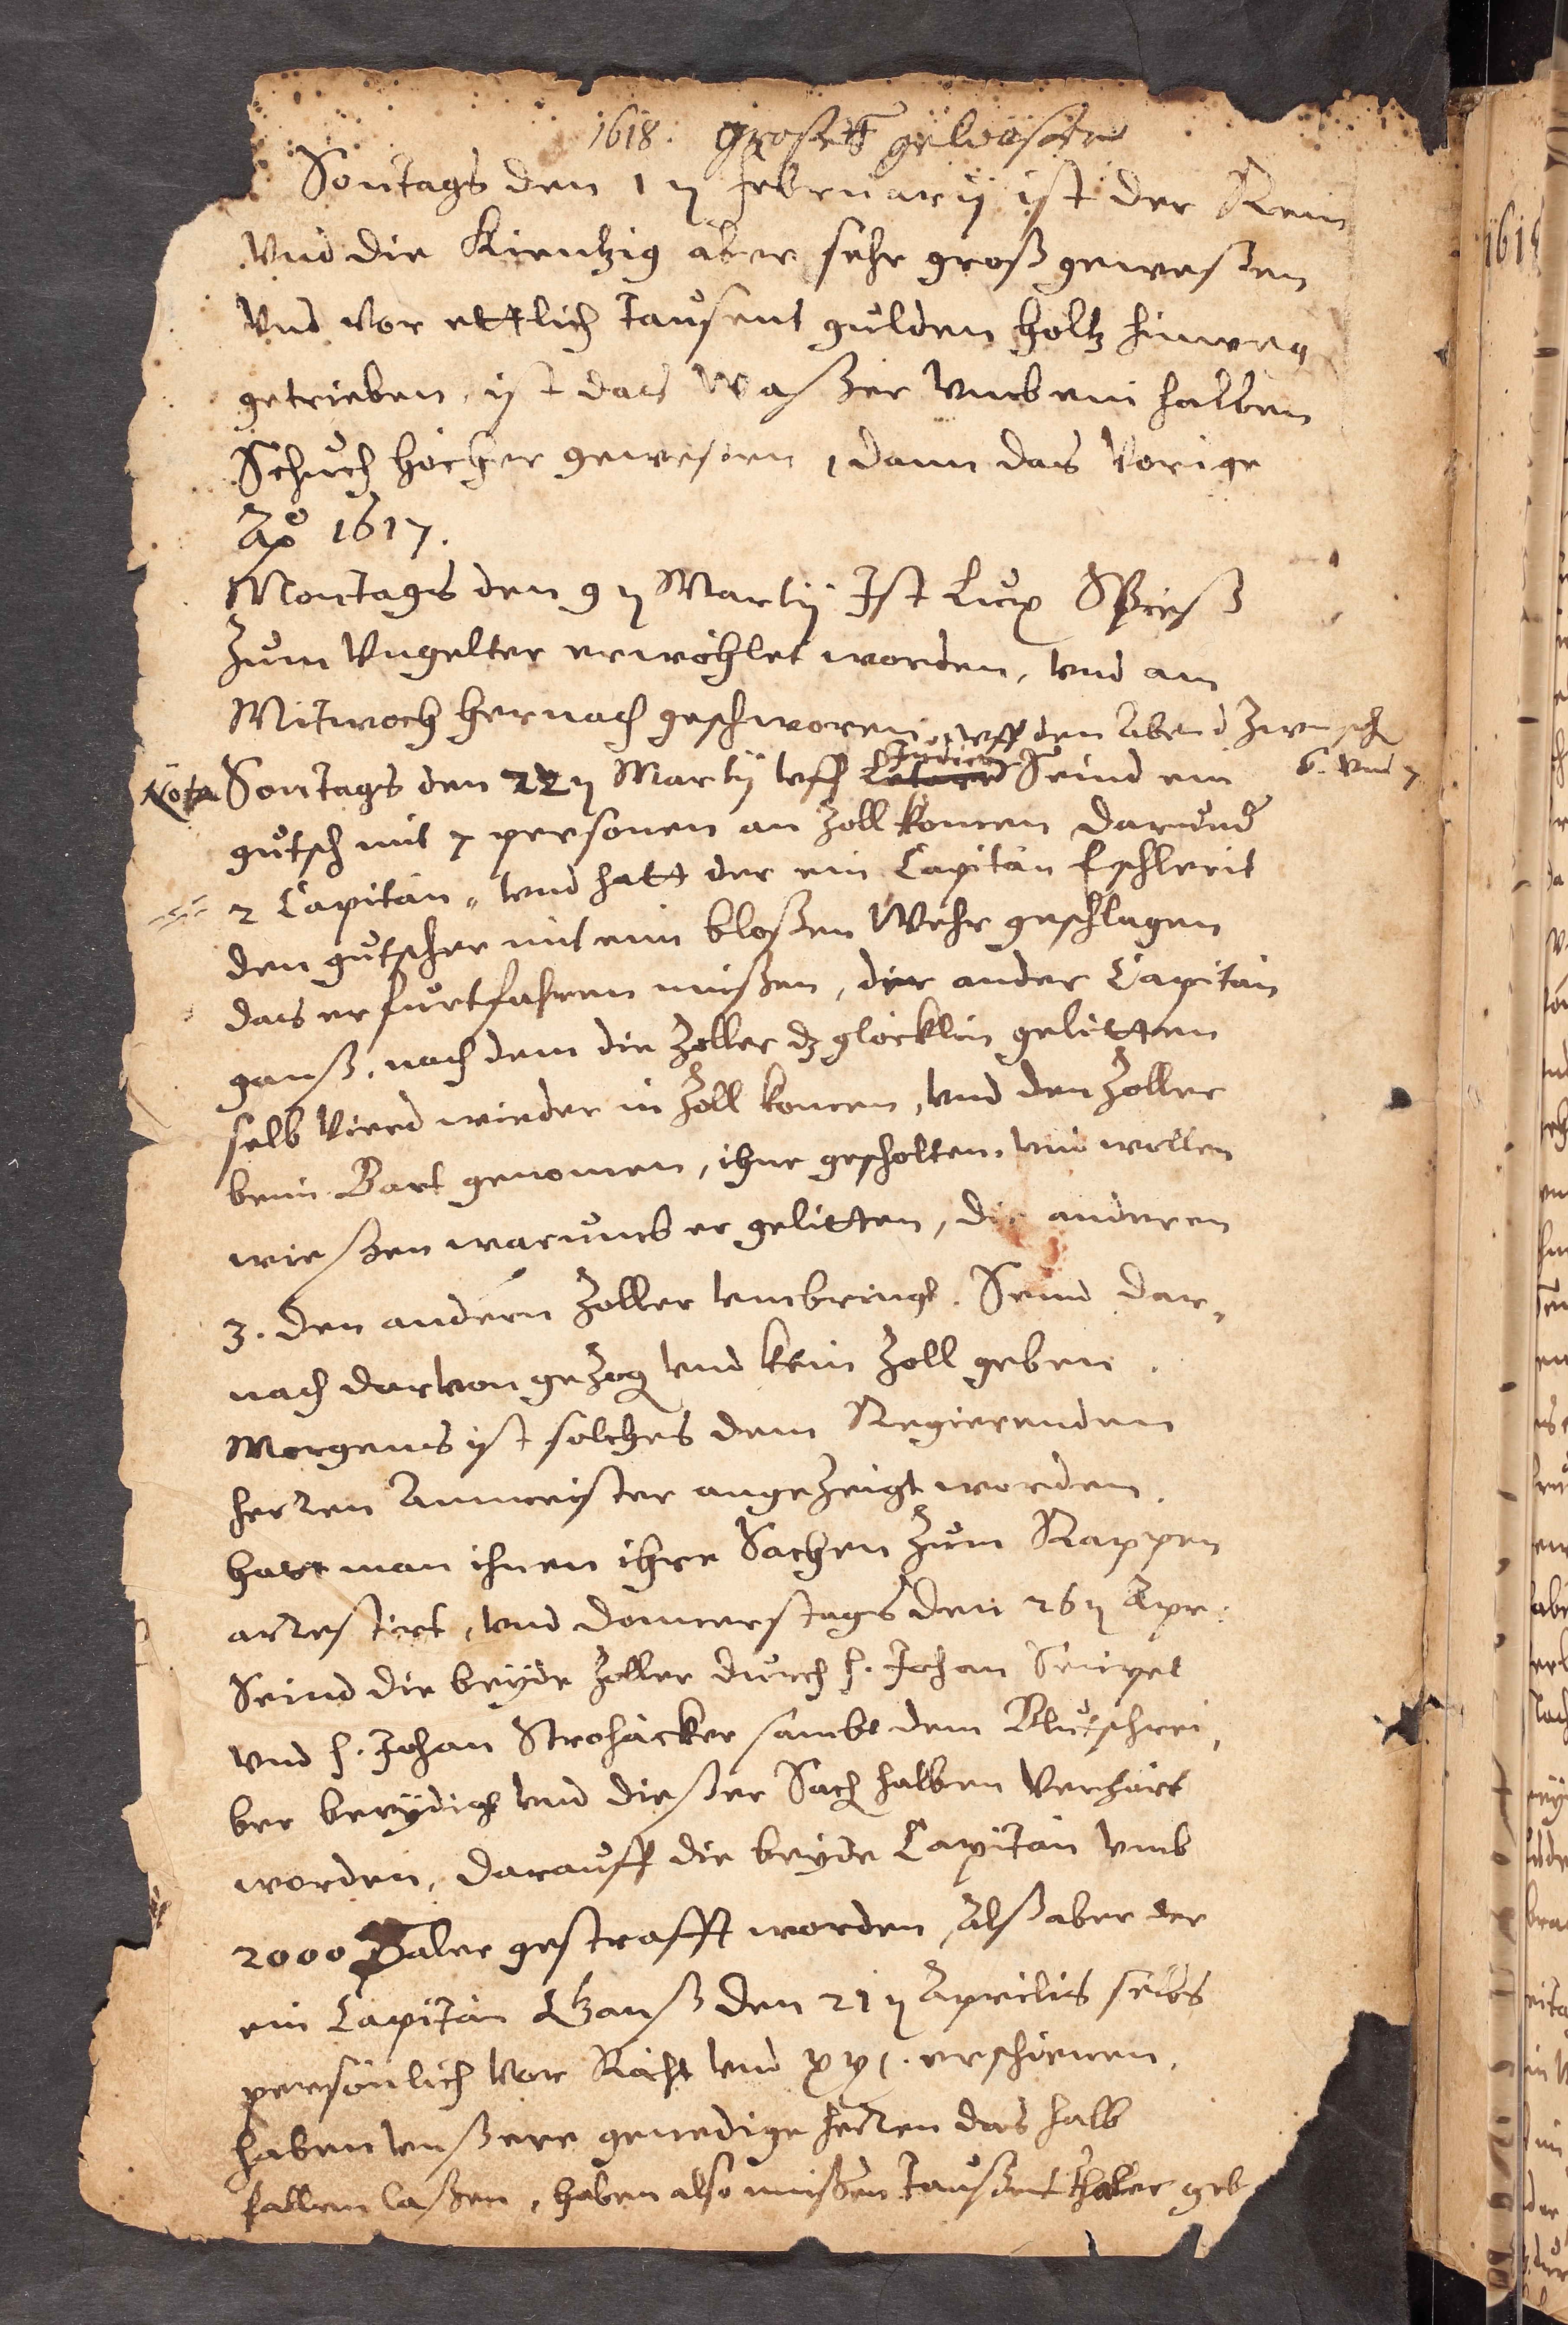 1618. groses gewesser
Sontags den 1 n february ist der Rein
Vnd die Kientzig aber sehr groß geweßen
Vnd vor ettlich Taußent gulden holtz hinweg
getrieben, ist das Waßer vmb ein halben
Schuch höcher geweßen, dann das Vorige
Ao 1617.
Montags den 9 n Martij Ist Lux Spieß
Zum Vngelter erwöhlet worden, vnd am
Mitwoch hernach geschworen, vff den Abend zwusch
6. vnd 7
Nota Sontags den 22 n Martij vff Judica Seind ein
gutsch mit 7 personen an Zoll komen darund
2 Capitän, vnd hatt der ein Capitän
den gutscher mit eim bloßen Wehr geschlagen
das er furtfahren müßen, der ander Capitän
ganß, nach dem die Zoller dz glöcklin gelitten
selb Vierd wieder in Zoll komen, vnd den Zoller
beim Bart genomen, ihne gescholten, vnd wollen
wießen warumb er gelitten, die anderen
3. den andern Zoller vmbringt. Seind dar,
nach darvon gezog vnd kein Zoll geben.
Morgens ist solches dem Regierenden
herren Ammeister angezeigt worden.
hatt man ihnen ihre Sachen Zum Rappen
arrestirt, vnd donnerstags den 26 n Apr:
Seind die beyde Zoller durch h. Johan
vnd h. Johan Strohäcker sambt dem Blutschrei,
ber beeydigt vnd dießer Sach halben Verhört
worden, darauff die beyde Capitän vmb
2000 Daler gestrafft worden, Alß aber der
ein Capitän Ganß den 21 n Aprilis selbs
persönlich Vor Räht vnd xxj. erschienen,
haben vnßere genedige herren das halb
fallen laßen, haben also müßen Taußent thaler geb